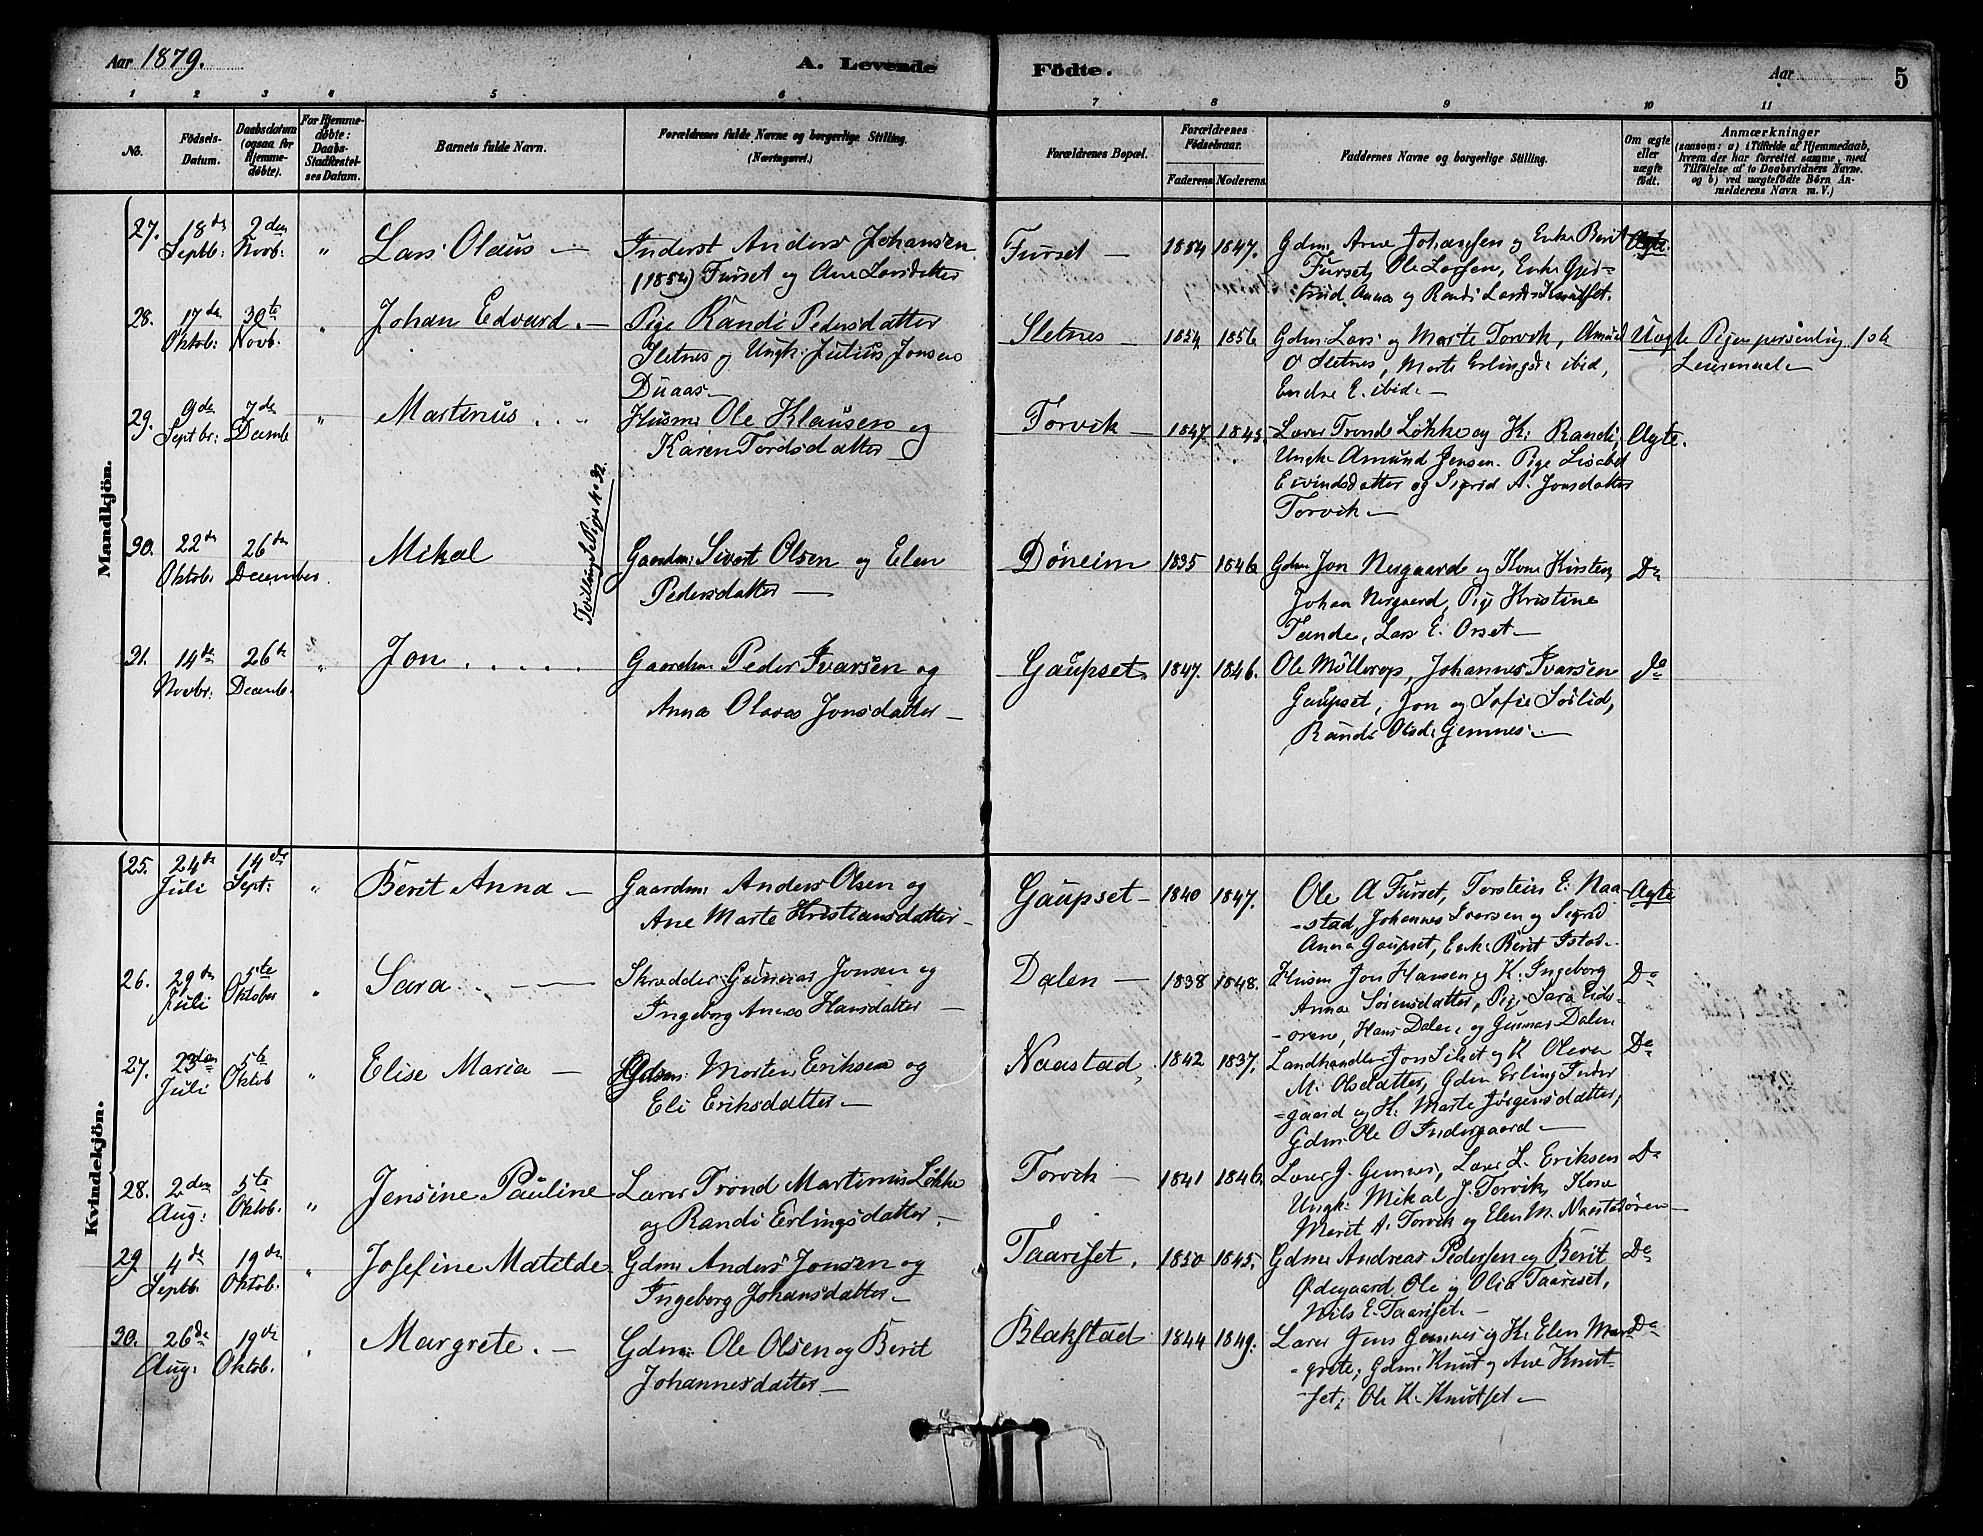 Aar 1879.
A. Levende Födte.
Aar
5
1 2 3 4 5 6 7 8 9 10 11
No.
Födsels-
Datum.
Daabsdatum
(ogsaa for
Hjemme-
døbte).
For Hjemme-
døbte:
Daabs-
Stadfæstel-
ses Datum.
Barnets fulde Navn.
Forældrenes fulde Navne og borgerlige Stilling.
(Næringsvei.)
Forældrenes Bopæl.
Forældrenes
Fødselsaar.
Faderens. Moderens.
Faddernes Navne og borgerlige Stilling.
Om ægte
eller
uægte
født.
Anmærkninger
(saasom: a) i Tilfælde af Hjemmedaab,
hvem der har forrettet samme, med
Tilföielse af to Daabsvidners Navne.
og b) ved uægtefödte Börn An-
melderens Navn m. V.)
Mandkjön.
27. 18de Septb: 2den Novb: " Lars Olaus —
Inderst Anders Johansen
(1854) Furset og Ane Larsdatter
Furset — 1854 1847.
Gdm: Arne Johansen og Enke Berit
Furset, Ole Larsen, Enke Gjer-
trud Anna og Randi Larsd: Knutset.
Ægte.
28. 17de Oktob: 30te Novb. " Johan Edvard. —
Pige Randi Pedersdatter
Sletnes og Ungk: Julius Jonsen
Duaas —
Sletnes — 1854 1856
Gdm: Lars og Marte Torvik, Amund
O Sletnes, Marte Erlingsd: ibid,
Endre E. ibid. —
Uægte
Pigen personlig. 1ste
Leiermaal. —
29. 9de Septbr: 7de Decemb " Martinus . . .
Husm: Ole Klausen og
Karen Tordsdatter
Torvik — 1847 1845.
Lærer Tronde Løkke og K: Randi,
Ungk. Amund Jensen. Pige Lisabet
Eivindsdatter og Sigrid A. Jonsdatter
Torvik —
Ægte.
30. 22de Oktob: 26de December. Mikal
Tvilling: Se Pige No 32.
Gaardm: Sivert Olsen og Elen
Pedersdatter —
Döneim 1835 1846
Gdm Jon Nergaard og Kone Kirsten,
Johan Nergaard, Pige Kristine
Tande, Lars E. Orset —
Do
31. 14de Novbr: 26de Decemb. " Jon. . . . . .
Gaardm: Peder Ivarsen og
Anna Olava Jonsdatter —
Gaupset. 1847. 1846.
Ole Möllerop, Johannes Ivarsen
Gaupset, Jon og Sofie Sörlid,
Randi Olsd: Gemnes. —
do
Kvindekjön.
25. 24de Juli 14de Sept: " Berit Anna —
Gaardm: Anders Olsen og
Ane Marte Kristiansdatter —
Gaupset — 1840 1847.
Ole A Furset, Torstein E. Naa-
-stad, Johannes Ivarsen og Sigrid
Anna Gaupset, Enk: Berit Istad —
Ægte
26. 29de Juli 5te Oktober " Sara — —
Skrædder Gunnar Jonsen og
Ingeborg Anna Hansdatter —
Dalen — 1838 1848.
Husm Jon Hansen og K. Ingeborg
Anna Sörensdatter, Pige Sara Eids-
-örene, Hans Dalen, og Gunnar Dalen
Do
27. 23den Juli 5te Oktob " Elise Maria —
Gdm: Morten Eriksen og
Eli Eriksdatter —
Naastad 1842 1837.
Landhandler Jon Silset og K Olava
M. Olsdatter, Gdm Erling Inder
-gaard og K: Marte Jörgensdatter,
Gdm: Ole O Indergaard —
Do
28. 2den Aug: 5te Oktob. " Jensine Pauline
Lærer Trond Martinus Løkke
og Randi Erlingsdatter. —
Torvik — 1841 1846.
Lærer J. Gemnes, Lærer L. Eriksen
Ungk: Mikal J. Torvik, Kone
Merit A. Torvik og Elen M. Naastadören —
Do
29. 4de Septb. 19de Oktob. " Josefine Matilde.
Gdm: Anders Jonsen og
Ingeborg Johansdatter —
Taarisset. 1850 1845.
Gdm: Andreas Pedersen og Berit
Ødegaard, Ole og Olia Taariset,
Nils E. Taarisset. —
Do
30. 26de Aug: 19de Oktob. " Margrete. —
Gdm: Ole Olsen og Berit
Johannesdatter —
Blakstad 1844 1849.
Lærer Jens Gemnes og K. Elen Mar-
-grete, Gdm: Knut og Ane Knut-
-set, Ole K. Knutset —
Do